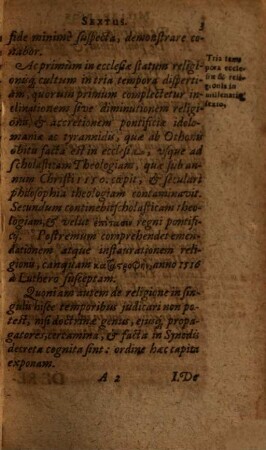 SEXTUS. 3
fide minimè suspecta, demonstrare co-
nabor.
Ac primùm in ecclesiæ statum religi-
onisq; cultum in tria tempora disperti-
am, quorum primum complectetur in-
clinationem sive diminutionem religi-
onis, & accretionem pontificiæ idolo-
maniæ ac tyrannidis, quæ ab Othonis
obitu facta est in ecclesia, usque ad
scholasticam Theologiam, quæ sub an-
num Christi 1150. cæpit, & seculari
philosophia theologiam contaminavit.
Secundum continebit scholasticam theo-
logiam, & velut regni pontifi-
cij. Postremum comprehendet emen-
dationem atque instaurationem reli-
gionis, tanquam καταστροφὴν, anno 1516
à Luthero susceptam.
Quoniam autem de religione in sin-
gulis hisce temporibus judicari non po-
test, nisi doctrinæ genus, ejusq; propa-
gatores, certamina, & facta in Synodis
decreta cognita sint: ordine hæc capita
exponam.
Tria tem-
pora eccle-
siæ & reli-
gionis in
A 2 I. De